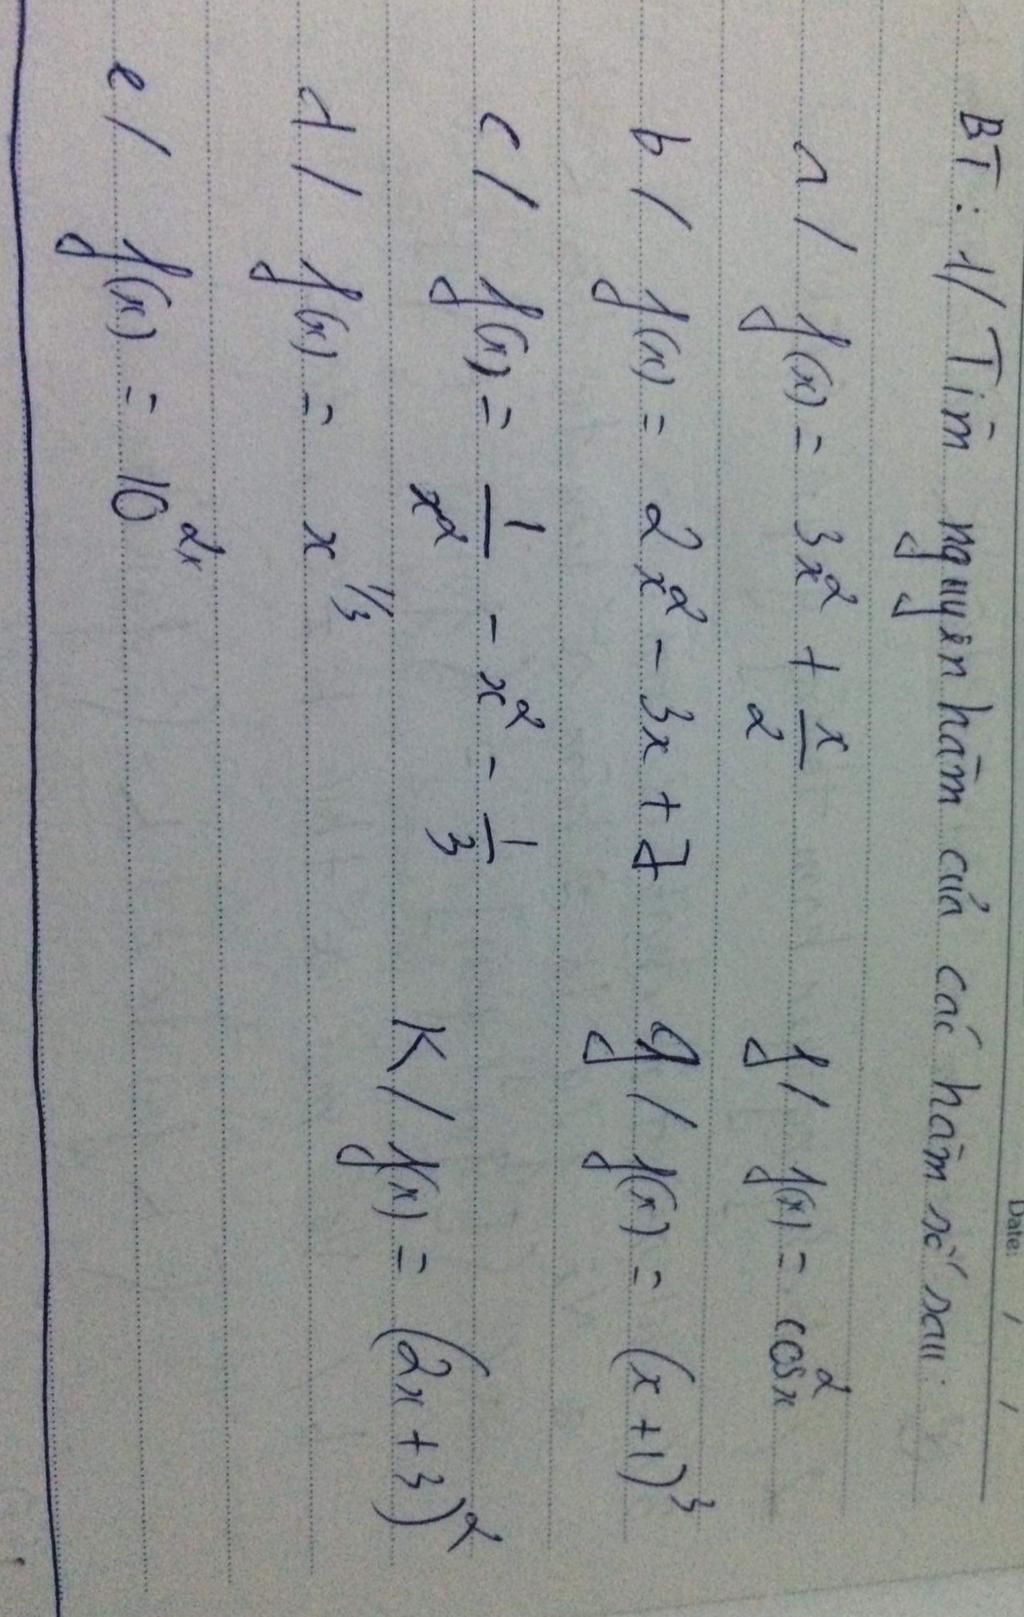 Date: / /
BT: 1/ Tìm nguyên hàm của các hàm số sau:
a/ f(x) = 3x² + x/2
f/ f(x) = cos²x
b/ f(x) = 2x² - 3x + 7
g/ f(x) = (x + 1)³
c/ f(x) = 1/x² - x² - 1/3
K/ f(x) = (2x + 3)²
d/ f(x) = x^1/3
e/ f(x) = 10^2x